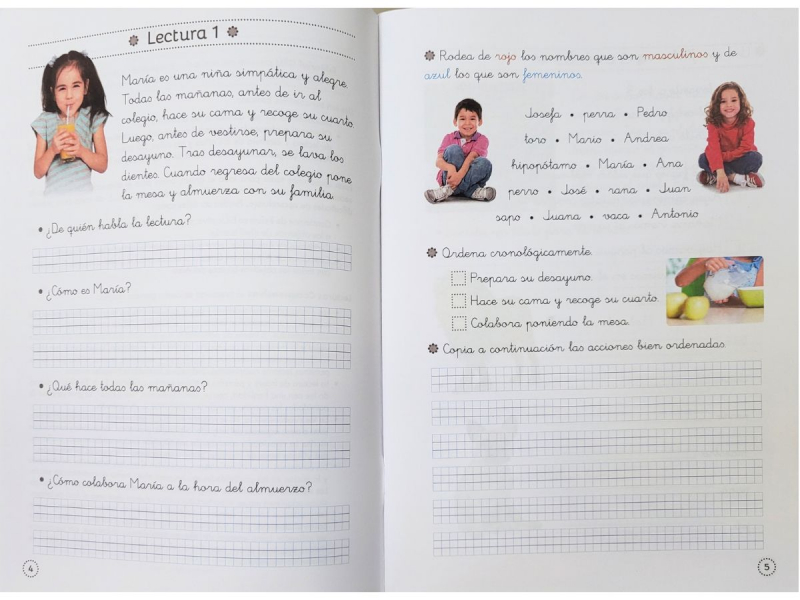 Lectura 1
María es una niña simpática y alegre.
Todas las mañanas, antes de ir al
colegio, hace su cama y recoge su cuarto.
Luego, antes de vestirse, prepara su
desayuno. Tras desayunar, se lava los
dientes. Cuando regresa del colegio pone
la mesa y almuerza con su familia.
• ¿De quién habla la lectura?
• ¿Cómo es María?
• ¿Qué hace todas las mañanas?
• ¿Cómo colabora María a la hora del almuerzo?
4
Rodea de rojo los nombres que son masculinos y de
azul los que son femeninos.
Josefa • perra • Pedro
toro • Mario • Andrea
hipopótamo • María • Ana
perro • José • rana • Juan
sapo • Juana • vaca • Antonio
Ordena cronológicamente.
Prepara su desayuno.
Hace su cama y recoge su cuarto.
Colabora poniendo la mesa.
Copia a continuación las acciones bien ordenadas.
5